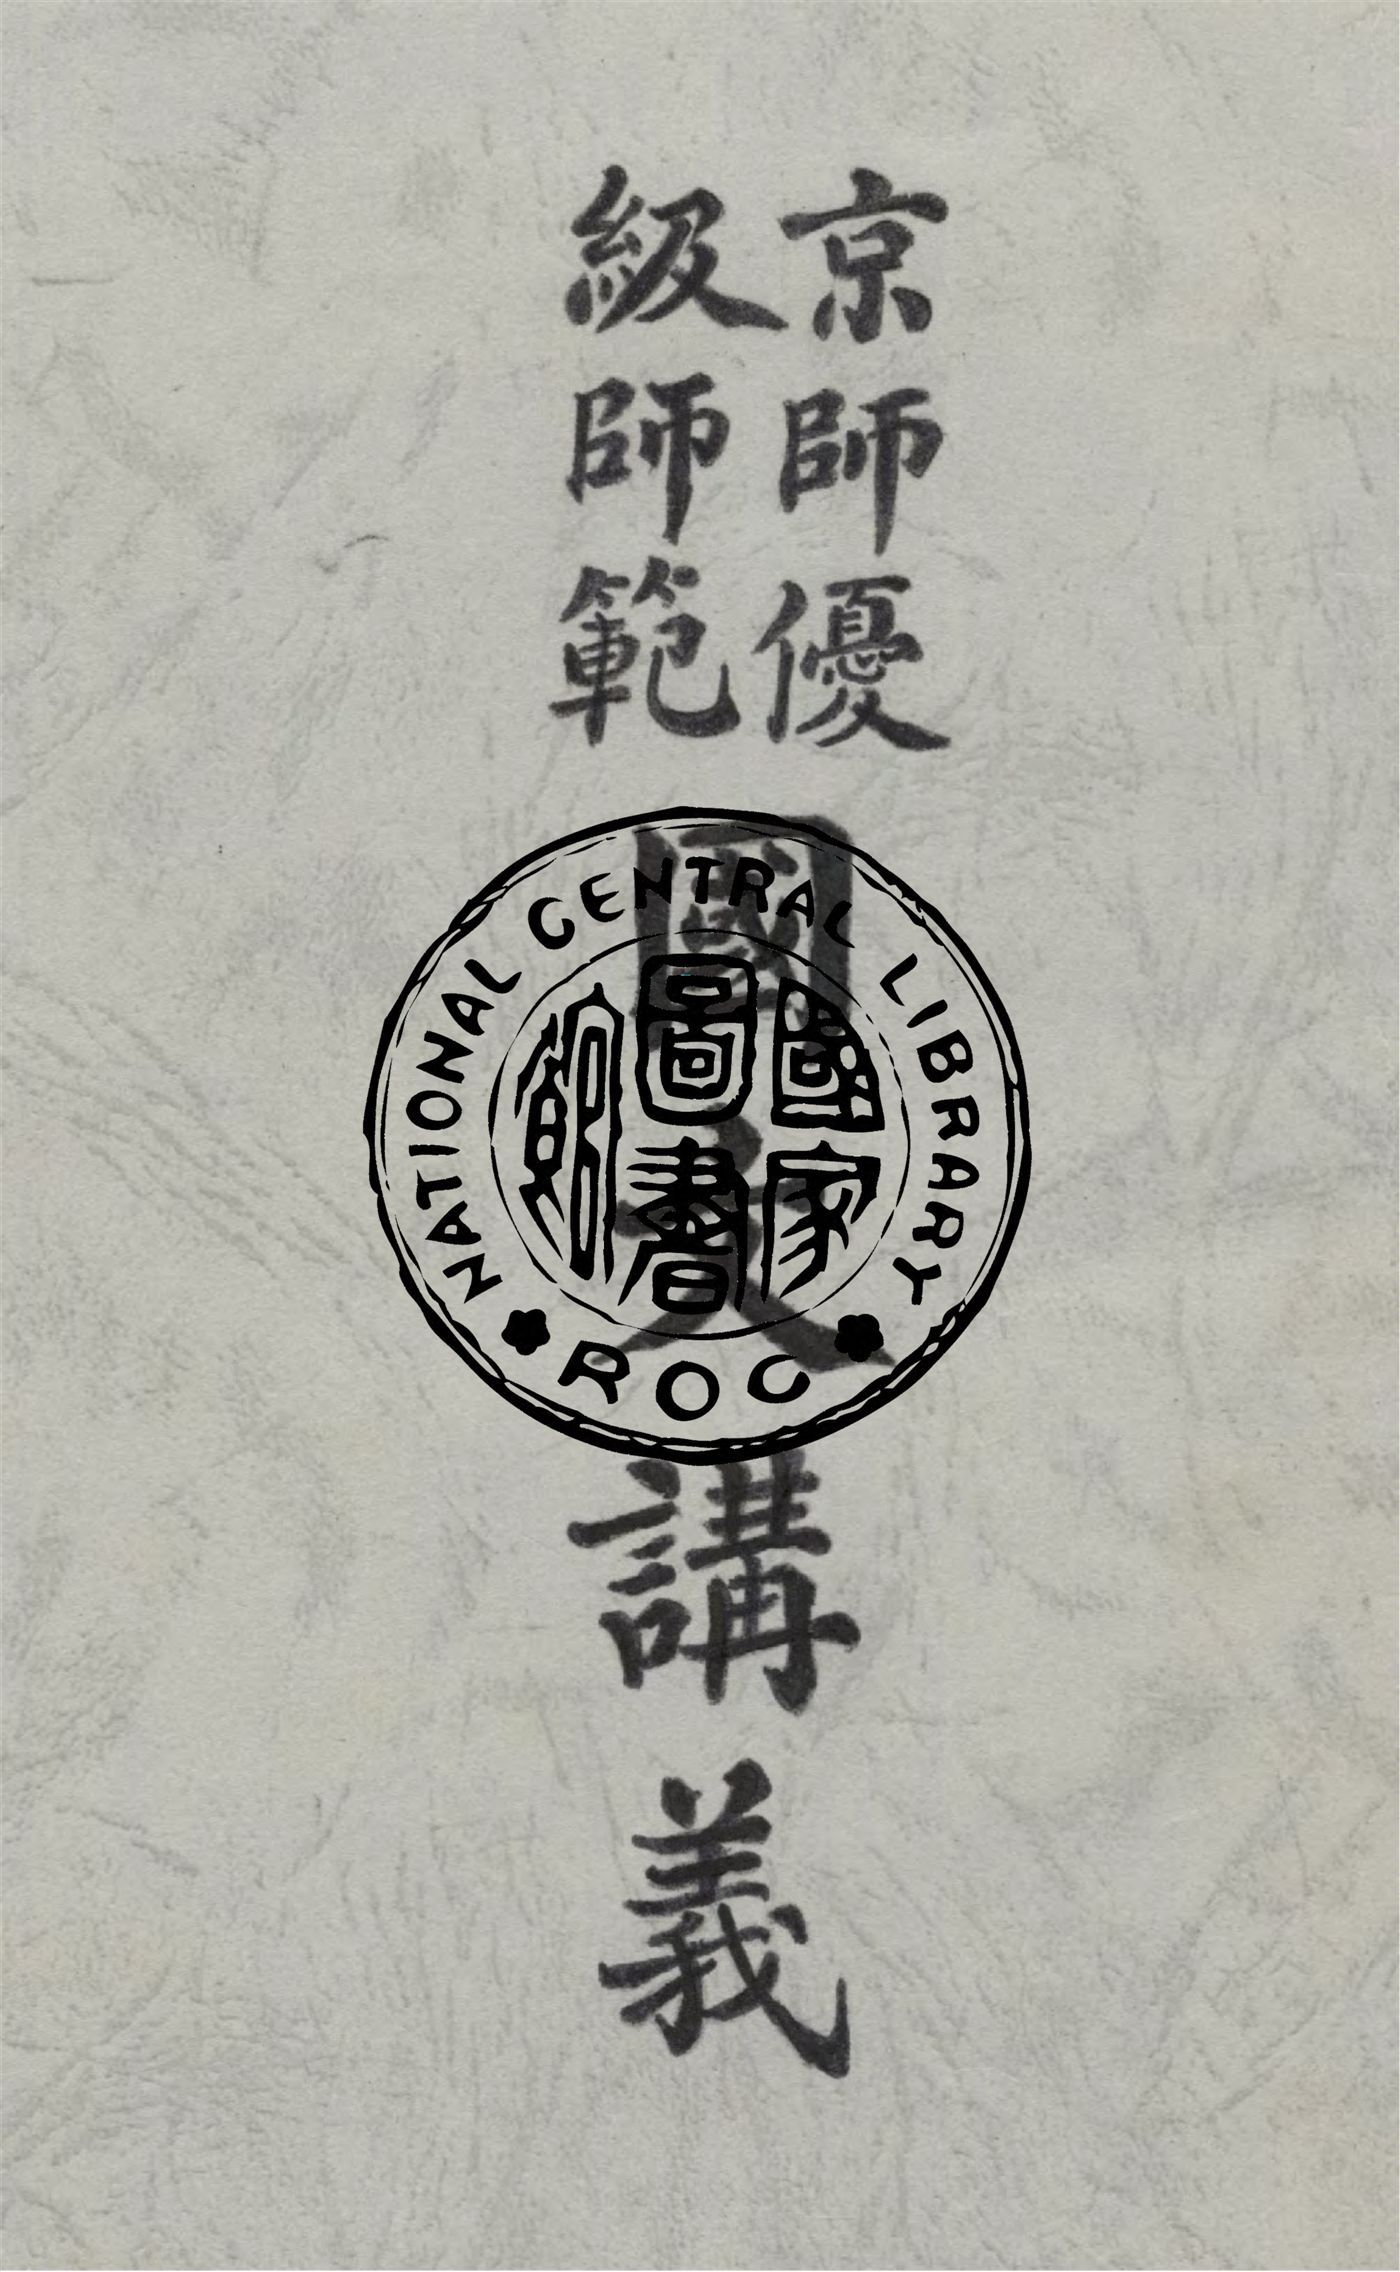 京師優
級師範
國文講義
NATIONAL CENTRAL LIBRARY
國家
圖書
館
ROC